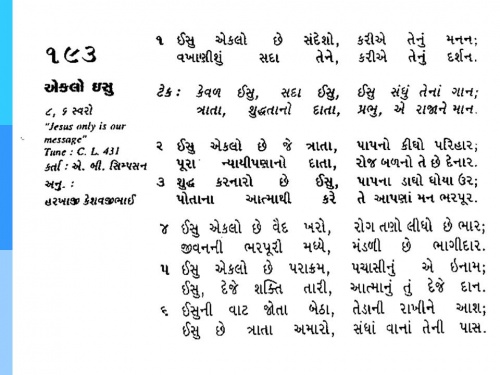 ૧૯૩
એકલો ઇસુ
૮, ૬ સ્વરો
"Jesus only is our
message"
Tune : C. L. 431
કર્તા : એ. બી. સિમ્પસન
અનુ. :
હરખાજી કેશવજીભાઈ
૧ ઈસુ એકલો છે સંદેશો, કરીએ તેનું મનન;
વખાણીશું સદા તેને, કરીએ તેનું દર્શન.
ટેક : કેવળ ઈસુ, સદા ઈસુ, ઈસુ સંધું તેનાં ગાન;
ત્રાતા, શુદ્ધતાનો દાતા, પ્રભુ, એ રાજાને માન.
૨ ઈસુ એકલો છે જે ત્રાતા, પાપનો કીધો પરિહાર;
પૂરા ન્યાયીપણાનો દાતા, રોજ બળનો તે છે દેનાર.
૩ શુદ્ધ કરનારો છે ઈસુ, પાપના ડાઘો ધોયા ઉર;
પોતાના આત્માથી કરે તે આપણાં મન ભરપૂર.
૪ ઈસુ એકલો છે વૈદ ખરો, રોગ તણો લીધો છે ભાર;
જીવનની ભરપૂરી મધ્યે, મંડળી છે ભાગીદાર.
૫ ઈસુ એકલો છે પરાક્રમ, પચાસીનું એ ઇનામ;
ઈસુ, દેજે શક્તિ તારી, આત્માનું તું દેજે દાન.
૬ ઈસુની વાટ જોતા બેઠા, તેડાની રાખીને આશ;
ઈસુ છે ત્રાતા અમારો, સંધાં વાનાં તેની પાસ.